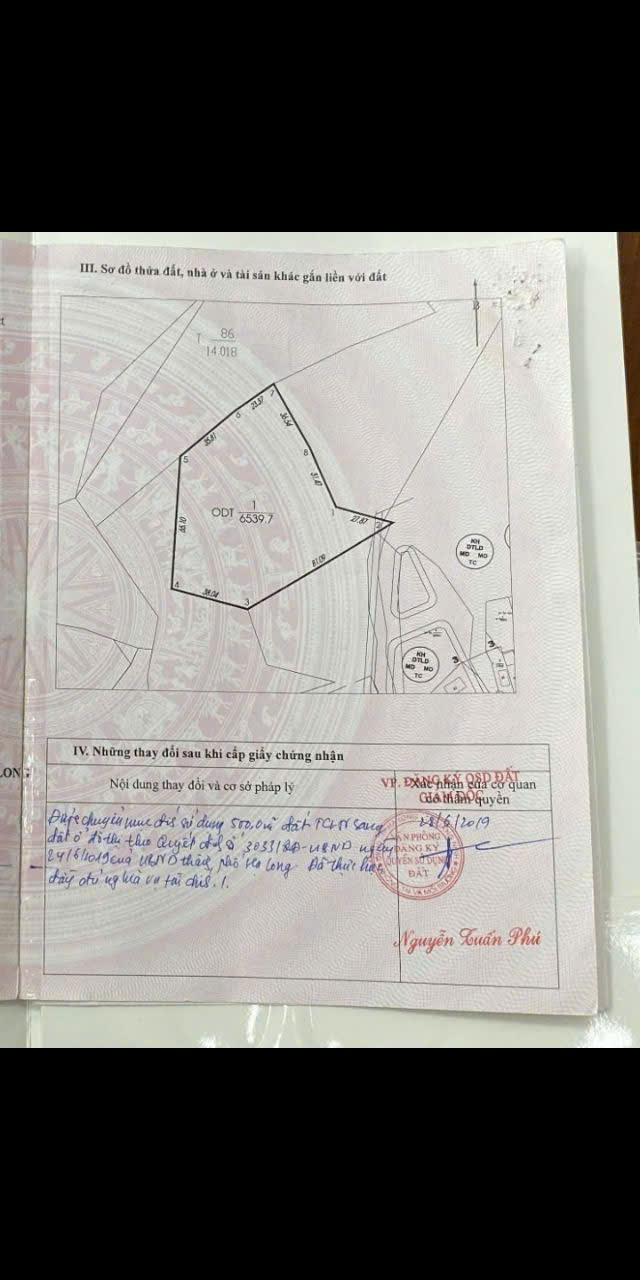 III. Sơ đồ thửa đất, nhà ở và tài sản khác gắn liền với đất
B
T 86
14.018
7
23.57
6
35.81
36.54
5
8
31.40
ODT 1
6539.7
1
27.87
2
81.09
4
38.04
3
KH
DTLD
MD MD
TC
KH
DTLD
MD MD
TC
3
3
LONG
IV. Những thay đổi sau khi cấp giấy chứng nhận
Nội dung thay đổi và cơ sở pháp lý
Xác nhận của cơ quan
có thẩm quyền
VP. ĐĂNG KÝ QSD ĐẤT
GIÁM ĐỐC
Được chuyển mục đích sử dụng 500,0m² đất sang
đất ở đô thị theo Quyết định số 3033/QĐ-UBND ngày
24/6/2019 của UBND thành phố Hạ Long. Đã thực hiện
đầy đủ nghĩa vụ tài chính./.
28/6/2019
VĂN PHÒNG
ĐĂNG KÝ
QUYỀN SỬ DỤNG
ĐẤT
Nguyễn Tuấn Phú